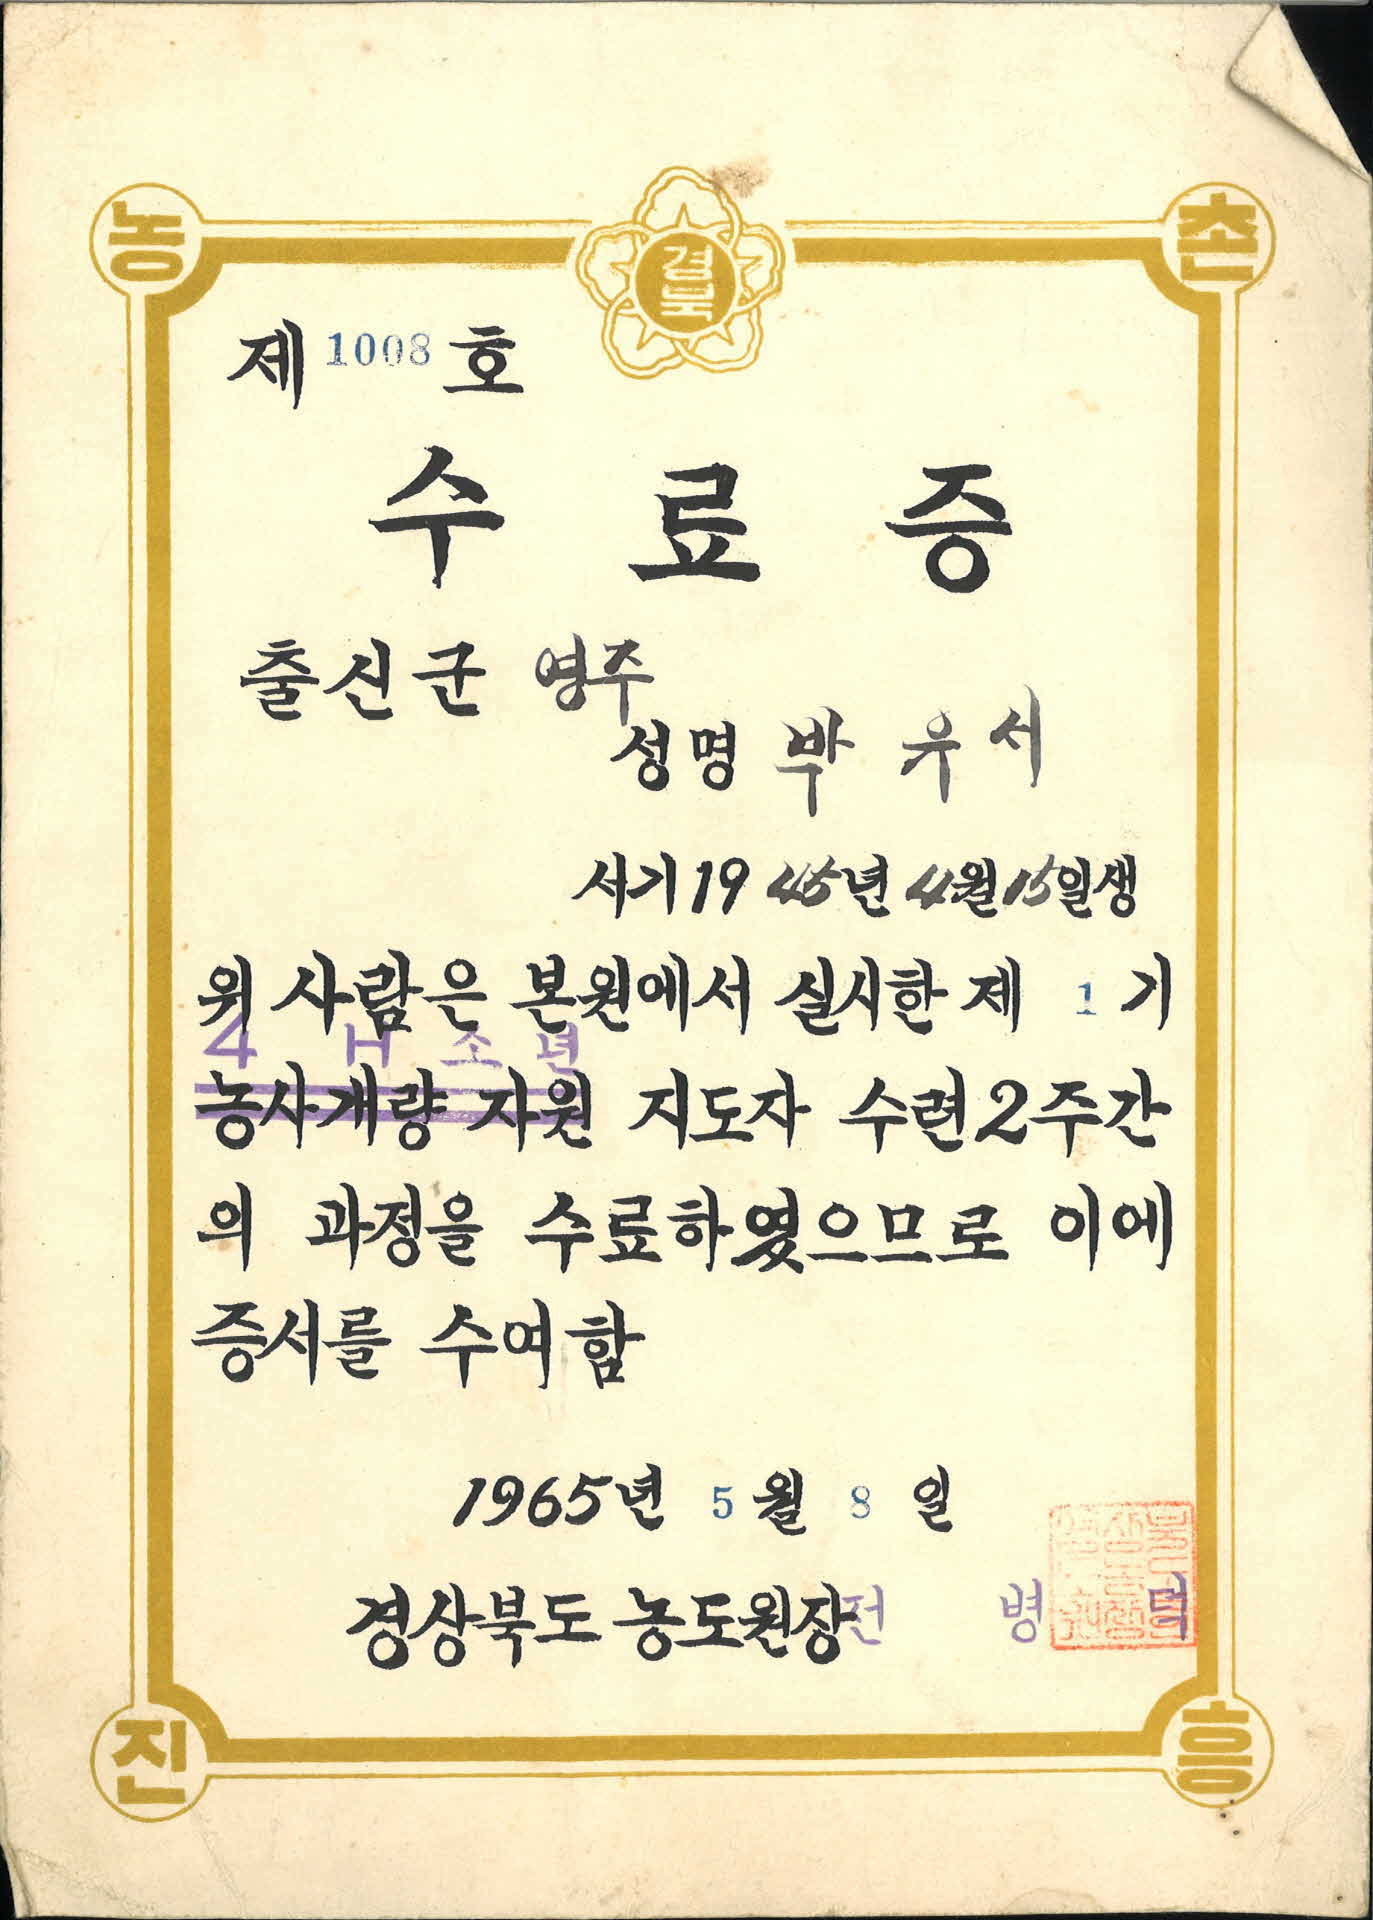 농 촌
경북
제 1008 호
수 료 증
출신군 영주
성명 박 우 서
서기 19 45년 4월 15일생
위 사람은 본원에서 실시한 제 1 기
4 H 소 년
농사개량 자원 지도자 수련 2주간
의 과정을 수료하였으므로 이에
증서를 수여함
1965년 5월 8일
경상북도 농도원장 전 병 덕
진 흥